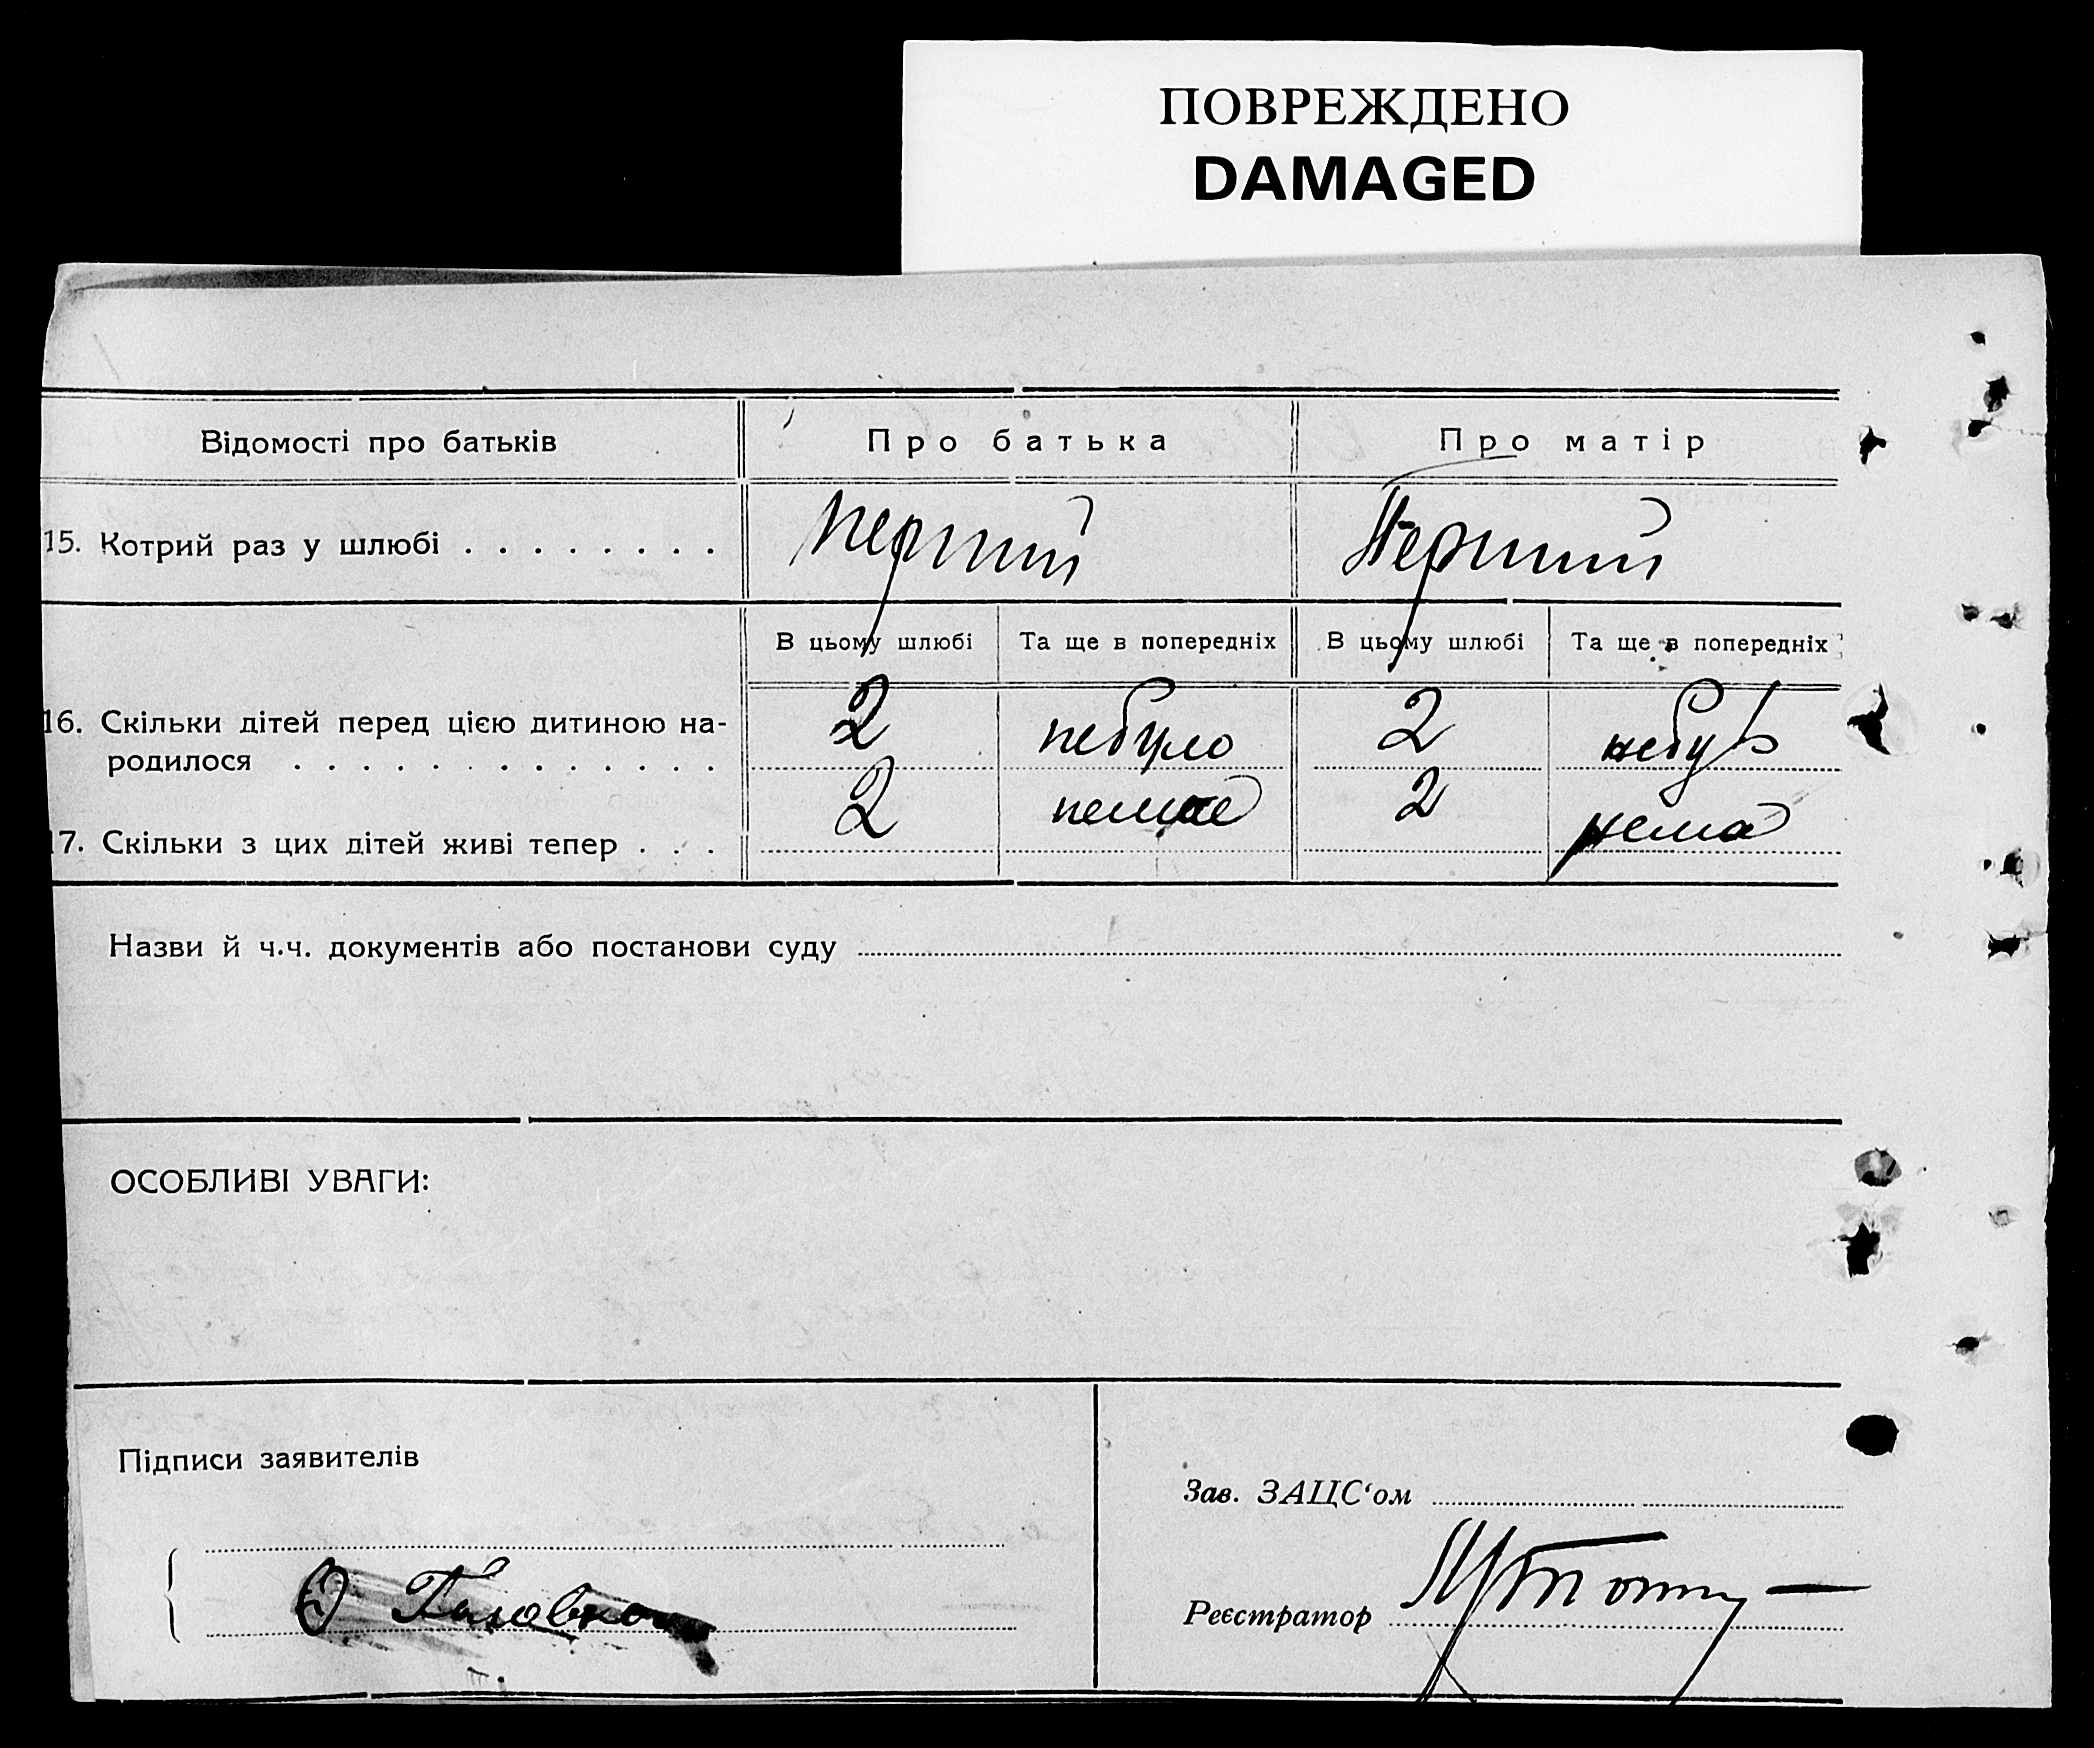 ПОВРЕЖДЕНО
DAMAGED
Відомості про батьків
Про батька
Про матір
15. Котрий раз у шлюбі . . . . . . . .
перший
Перший
В цьому шлюбі
Та ще в попередніх
В цьому шлюбі
Та ще в попередніх
16. Скільки дітей перед цією дитиною на-
родилося . . . . . . . . . . . . .
2
небуло
2
небул
17. Скільки з цих дітей живі тепер . . .
2
немає
2
нема
Назви й ч.ч. документів або постанови суду
ОСОБЛИВІ УВАГИ:
Підписи заявителів
Зав. ЗАЦС‘ом
Реєстратор